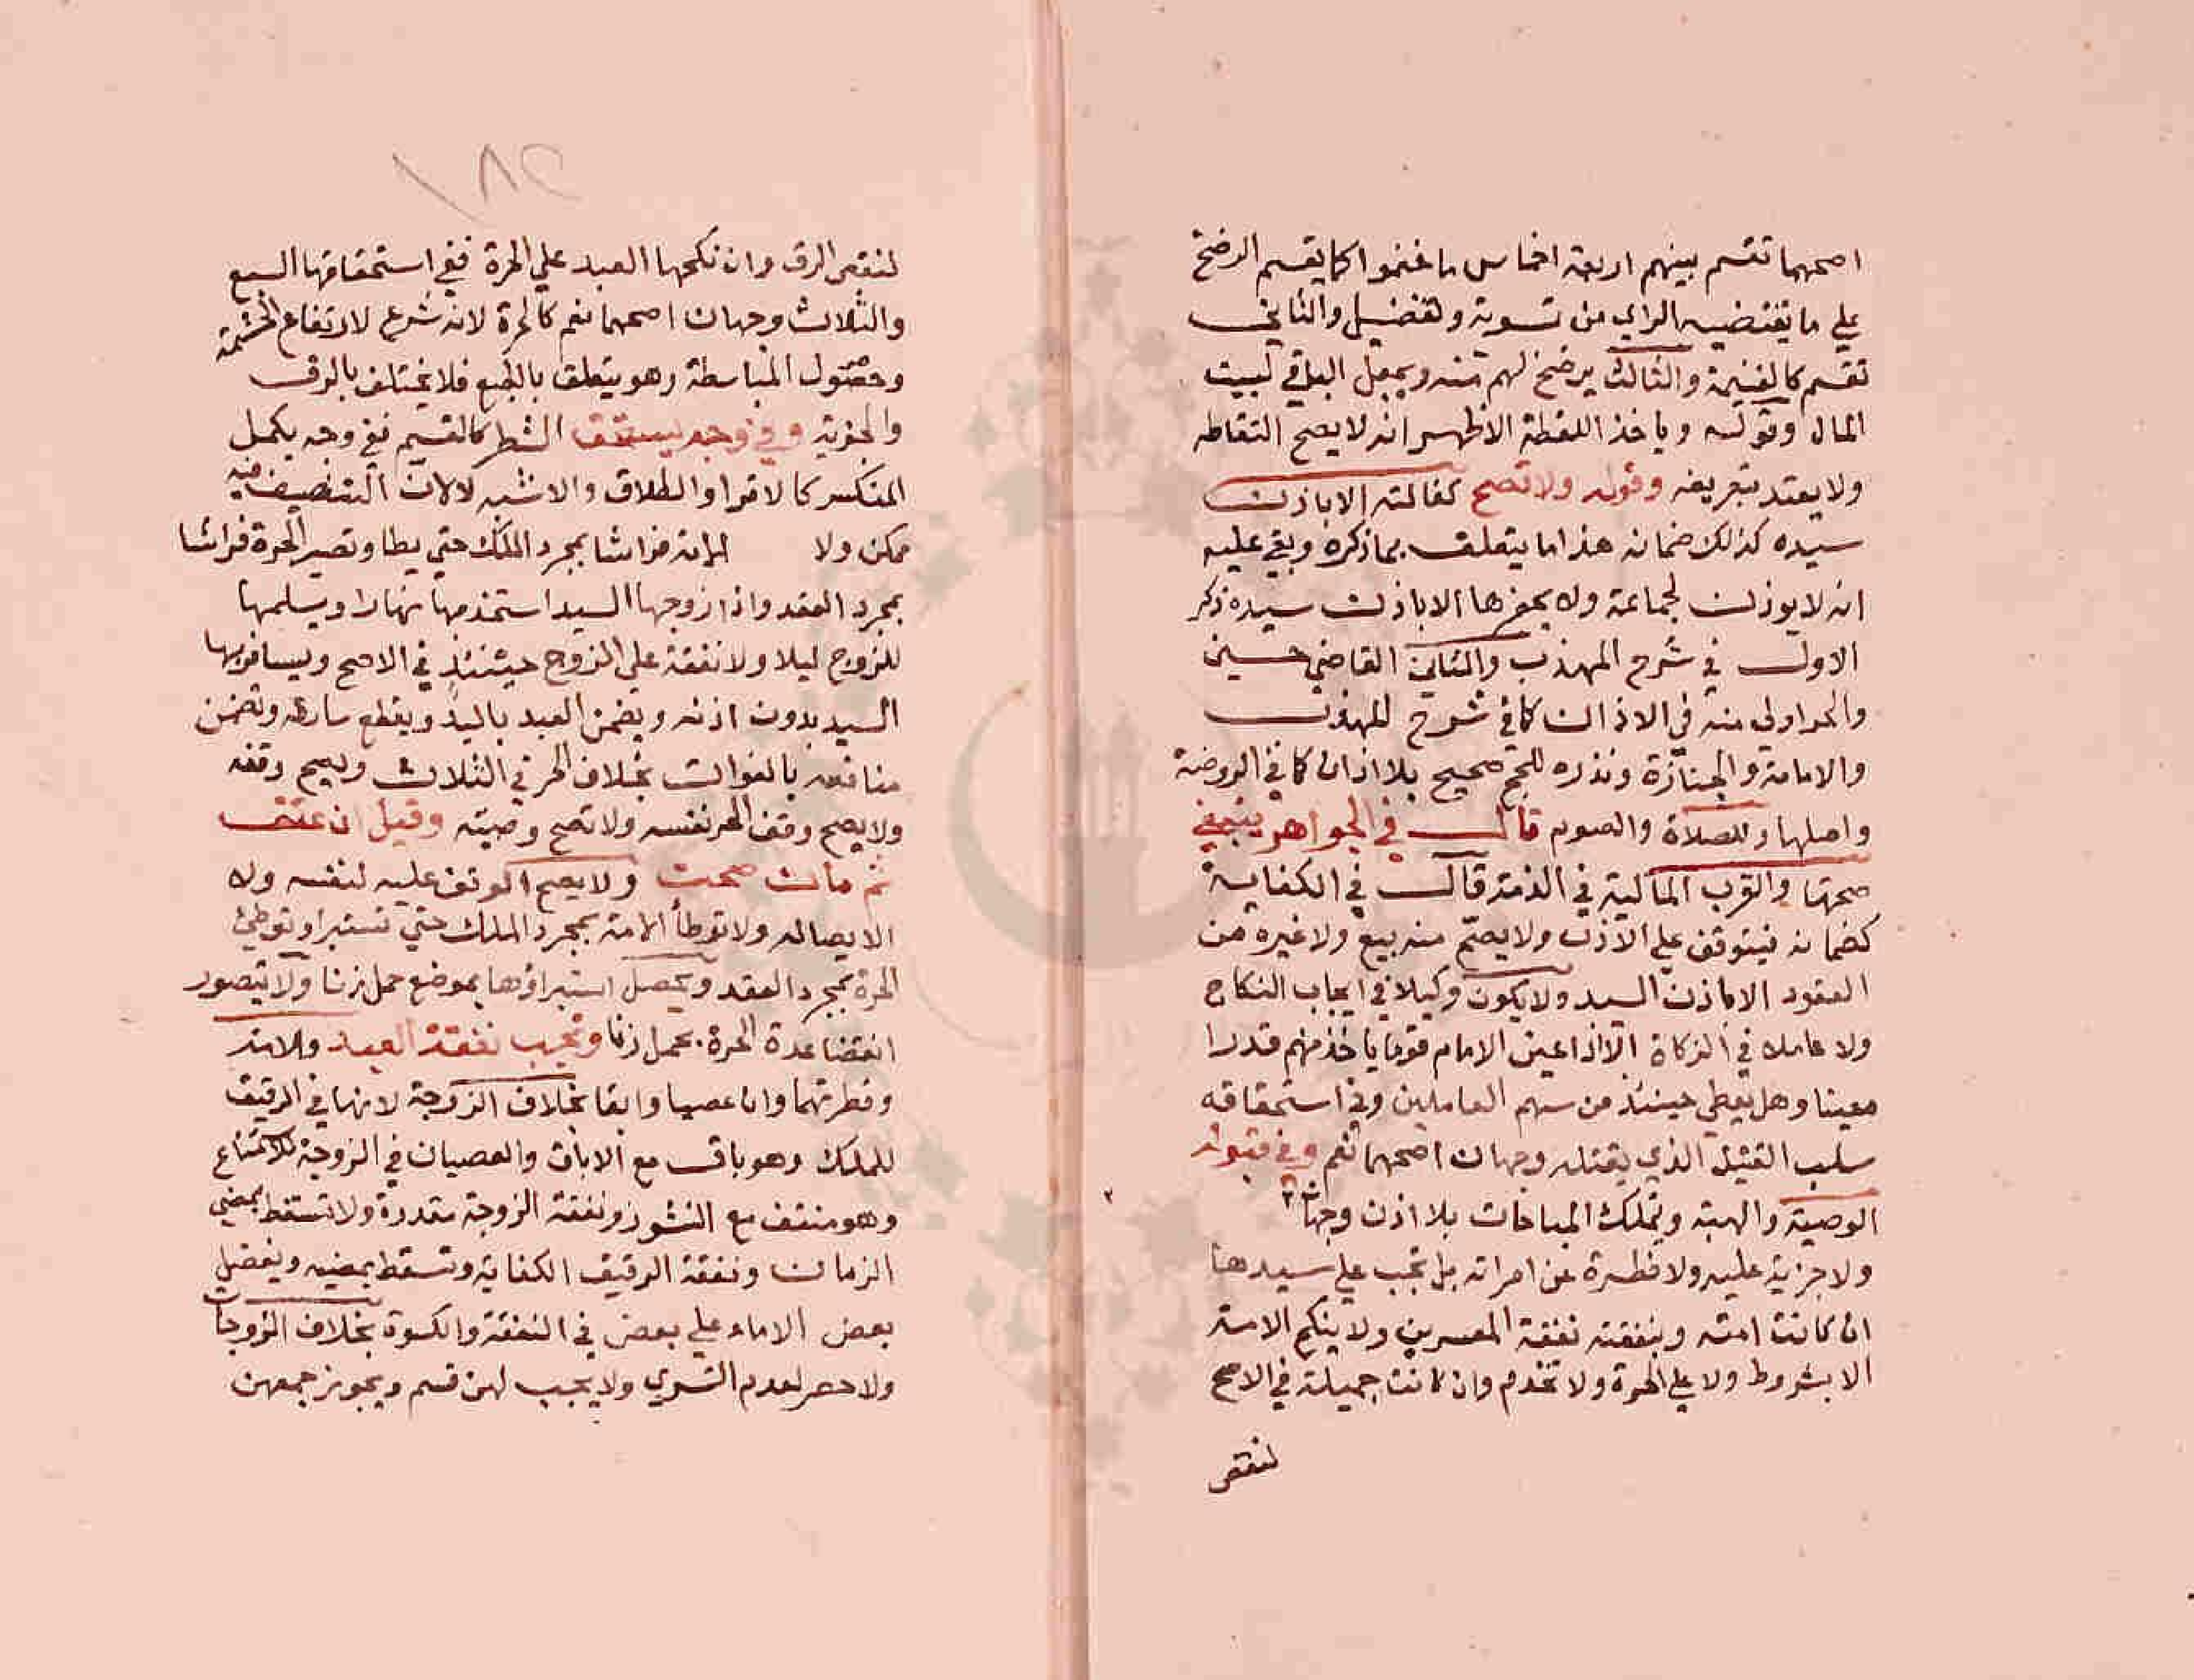 اصحهما تقسم بينهم اربعة اخماس ما غنموا كما يقسم الرضخ
علي ما يقتضيه الراي من تسوية وتفضيل والثاني
تقسم كالغنيمة والثالث يرضخ لهم منه ويجعل الباقي لبيت
المال وقوله وياخذ اللقطة الاظهر انه لا يصح التقاطه
ولا يعتد بتعريفه وقوله ولا تصح كفالته الا باذن
سيده كذلك ضمانه هذا ما يتعلق بما ذكره وبقي عليه
انه لا يوذن لجماعة ولا يحضرها الا باذن سيده ذكر
الاول في شرح المهذب والثاني القاضي حسين
والحر اولي منه في الاذان كما في شرح المهذب
والامامة والجنازة ونذره للحج صحيح بلا اذن كما في الروضة
واصلها وللصلاة والصوم قال في الجواهر ينبغي
صحتها والقرب المالية في الذمة قال في الكفاية
كضمانه فيتوقف علي الاذن ولا يصح منه بيع ولا غيره من
العقود الا باذن السيد ولا يكون وكيلا في ايجاب النكاح
ولا عاملا في الزكاة الا اذا عين الامام قوما ياخذ منهم قدرا
معينا وهل يعطي حينئذ من سهم العاملين وفي استحقاقه
سلب القتيل الذي يقتله وجهان اصحهما نعم وفي قبوله
الوصية والهبة وتملك المباحات بلا اذن وجهان
ولا جزية عليه ولا فطرة عن امراته بل تجب علي سيدها
ان كانت امته وبنفقته نفقة المعسرين ولا ينكح الامة
الا بشروط ولا علي الحرة ولا تخدم وان كانت جميلة في الاصح
لنقص
١٨٢
لنقص الرق وان نكحها العبد علي الحرة ففي استحقاقها السبع
والثلاث وجهان اصحهما نعم كالحرة لانه شرع لارتفاع الحشمة
وحصول المباسطة وهو يتعلق بالطبع فلا يختلف بالرق
والحرية وفي وجه يستحق الشطر كالقسم ففي وجه يكمل
المنكسر كالاقرا والطلاق والاشبه لا لان التنصيف فيه
ممكن ولا الامة فراشا بمجرد الملك حتي يطا وتصير الحرة فراشا
بمجرد العقد واذا زوجها السيد استخدمها نهارا ويسلمها
للزوج ليلا ولا نفقة علي الزوج حينئذ في الاصح ويسافر بها
السيد بدون اذنه ويضمن العبد باليد ويقطع سارقه وتضمن
منافعه بالفوات بخلاف الحر في الثلاث ويصح وقفه
ولا يصح وقف الحر نفسه ولا تصح وصيته وقيل ان عتق
ثم مات صحت ولا يصح الوقف عليه لنفسه ولا
الايصا له ولا توطأ الامة بمجرد الملك حتي تستبرا وتوطئ
الحرة بمجرد العقد ويحصل استبراؤها بموضع حمل زنا ولا يتصور
انقضا عدة الحرة بحمل زنا وتجب نفقة العبد والامة
وفطرتهما وان عصيا وابقا بخلاف الزوجة لانها في الرقيق
للملك وهو باق مع الاباق والعصيان في الزوجة للامتناع
وهو منتف مع النشوز ونفقة الزوجة مقدرة ولا تسقط بمضي
الزمان ونفقة الرقيق الكفاية وتسقط بمضيه ويفضل
بعض الاماء علي بعض في النفقة والكسوة بخلاف الزوجات
ولا حصر لعدم التسري ولا يجب لهن قسم ويجوز جمعهن